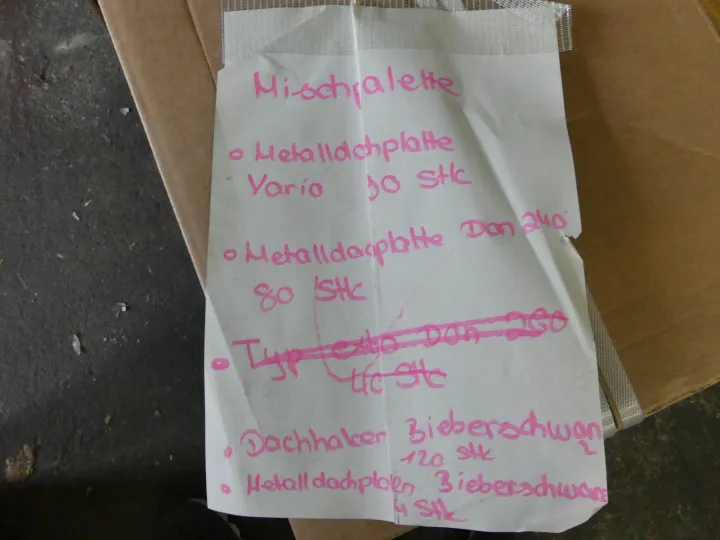 Mischpalette
Metalldachplatte
Vario Stk
Metalldacplatte Dan 240
80 Stk
Typ extra Dan 260
Stk
Dachhaker Bieberschwan
z
120 stk
Metalldachplaten Bieberschwanz
4 Stk